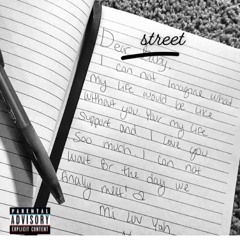 street
Dear Baby,
I can not Imagine what
My life would be like
without you thur my life
support and I love you
Soo much I can not
wait for the day we
finally meet!
Mi luv Yah
PARENTAL
ADVISORY
EXPLICIT CONTENT